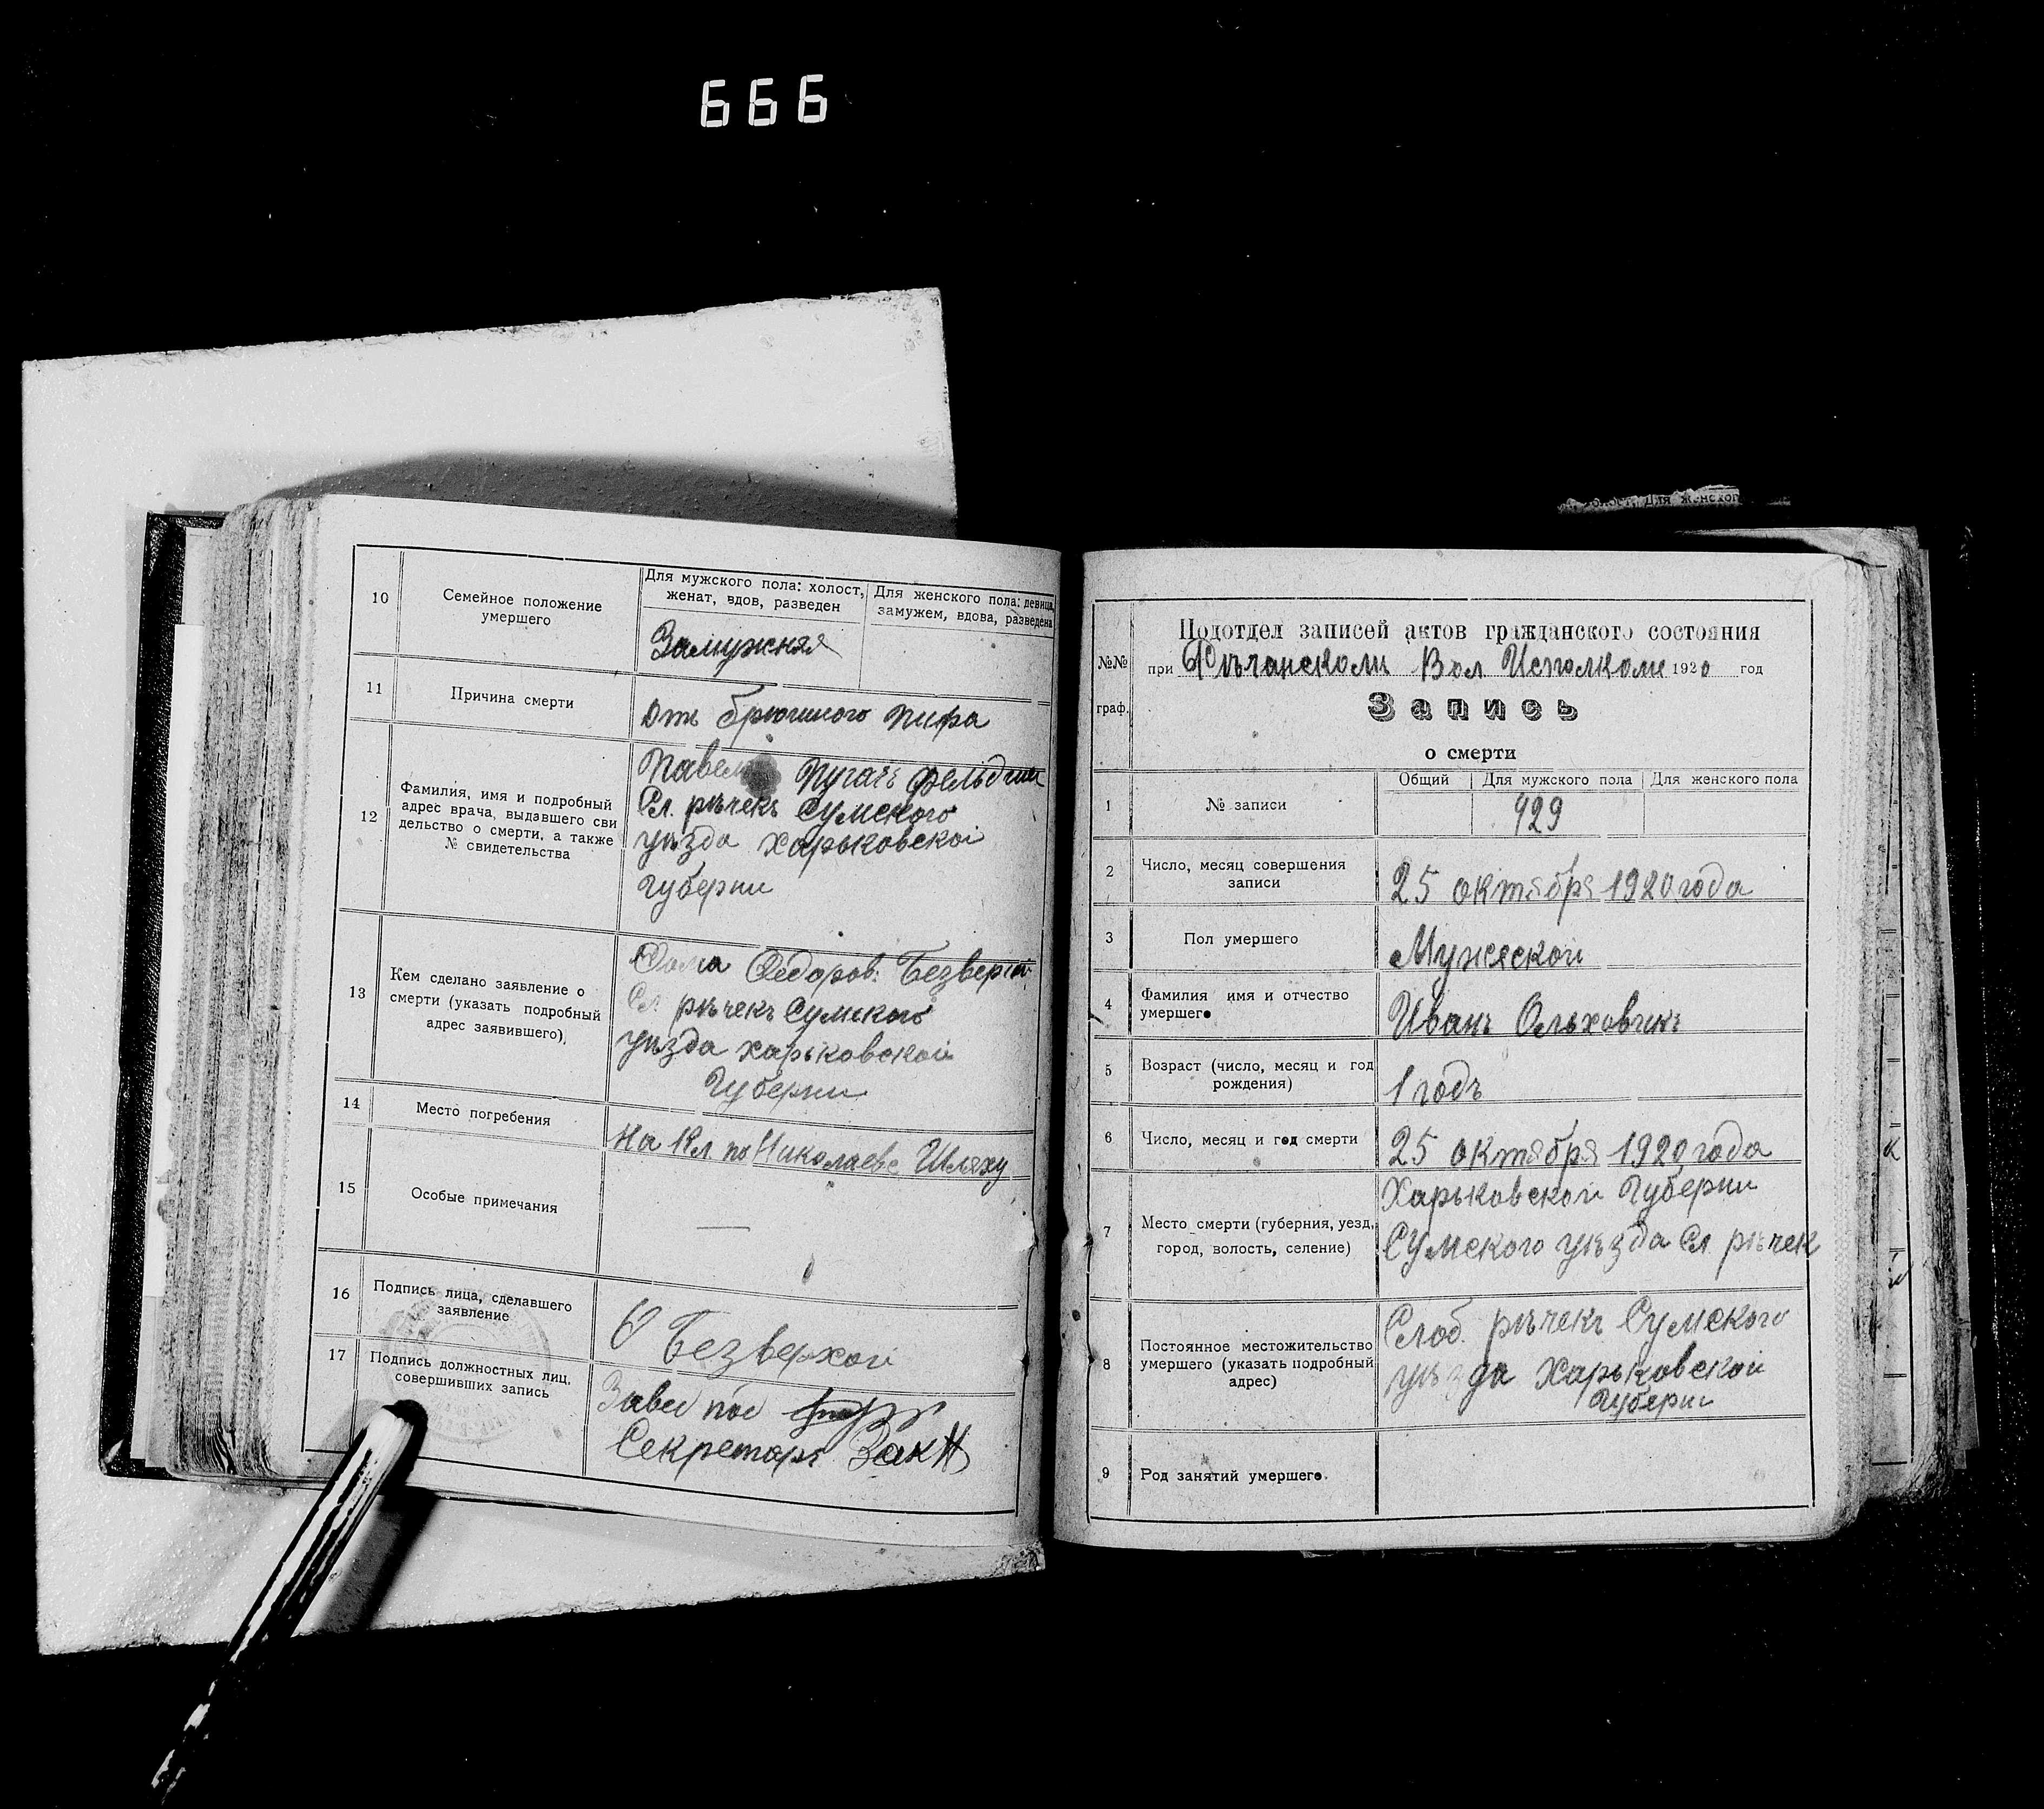 666
10
Семейное положение
умершего
Для мужского пола: холост,
женат, вдов, разведен
Для женского пола: девица,
замужем, вдова, разведена
Замужняя
11
Причина смерти
Отъ брюшного тифа
12
Фамилия, имя и подробный
адрес врача, выдавшего сви
дельство о смерти, а также
№ свидетельства
Павел Пугачъ фельдшн
Сл. рѣчекъ Сумского
уѣзда Харьковской
губерни
13
Кем сделано заявление о
смерти (указать подробный
адрес заявившего).
Фома Федоров. Безверхой
Сл. рѣчекъ Сумского
уѣзда харьковской
Губерни
14
Место погребения
На Кл по Николаевс Шляху
15
Особые примечания
—
16
Подпись лица, сделавшего
заявление
Ф Безверхой
17
Подпись должностных лиц,
совершивших запись
Завед пос
Секретарь Зак
Для женского
№№
граф.
Подотдел записей актов гражданского состояния
при Рѣчанском Вол Исполкоме 1920 год
Запись
о смерти
Общий
Для мужского пола
Для женского пола
1
№ записи
929
2
Число, месяц совершения
записи
25 октября 1920 года
3
Пол умершего
Мужеской
4
Фамилия имя и отчество
умершего
Иванъ Ольховикъ
5
Возраст (число, месяц и год
рождения)
1 годъ
6
Число, месяц и год смерти
25 октября 1920 года
7
Место смерти (губерния, уезд,
город, волость, селение)
Харьковской Губерни
Сумского уѣзда Сл. рѣчек
8
Постоянное местожительство
умершего (указать подробный
адрес)
Слоб. рѣчекъ Сумского
уѣзда Харьковской
Губерни
9
Род занятий умершего.